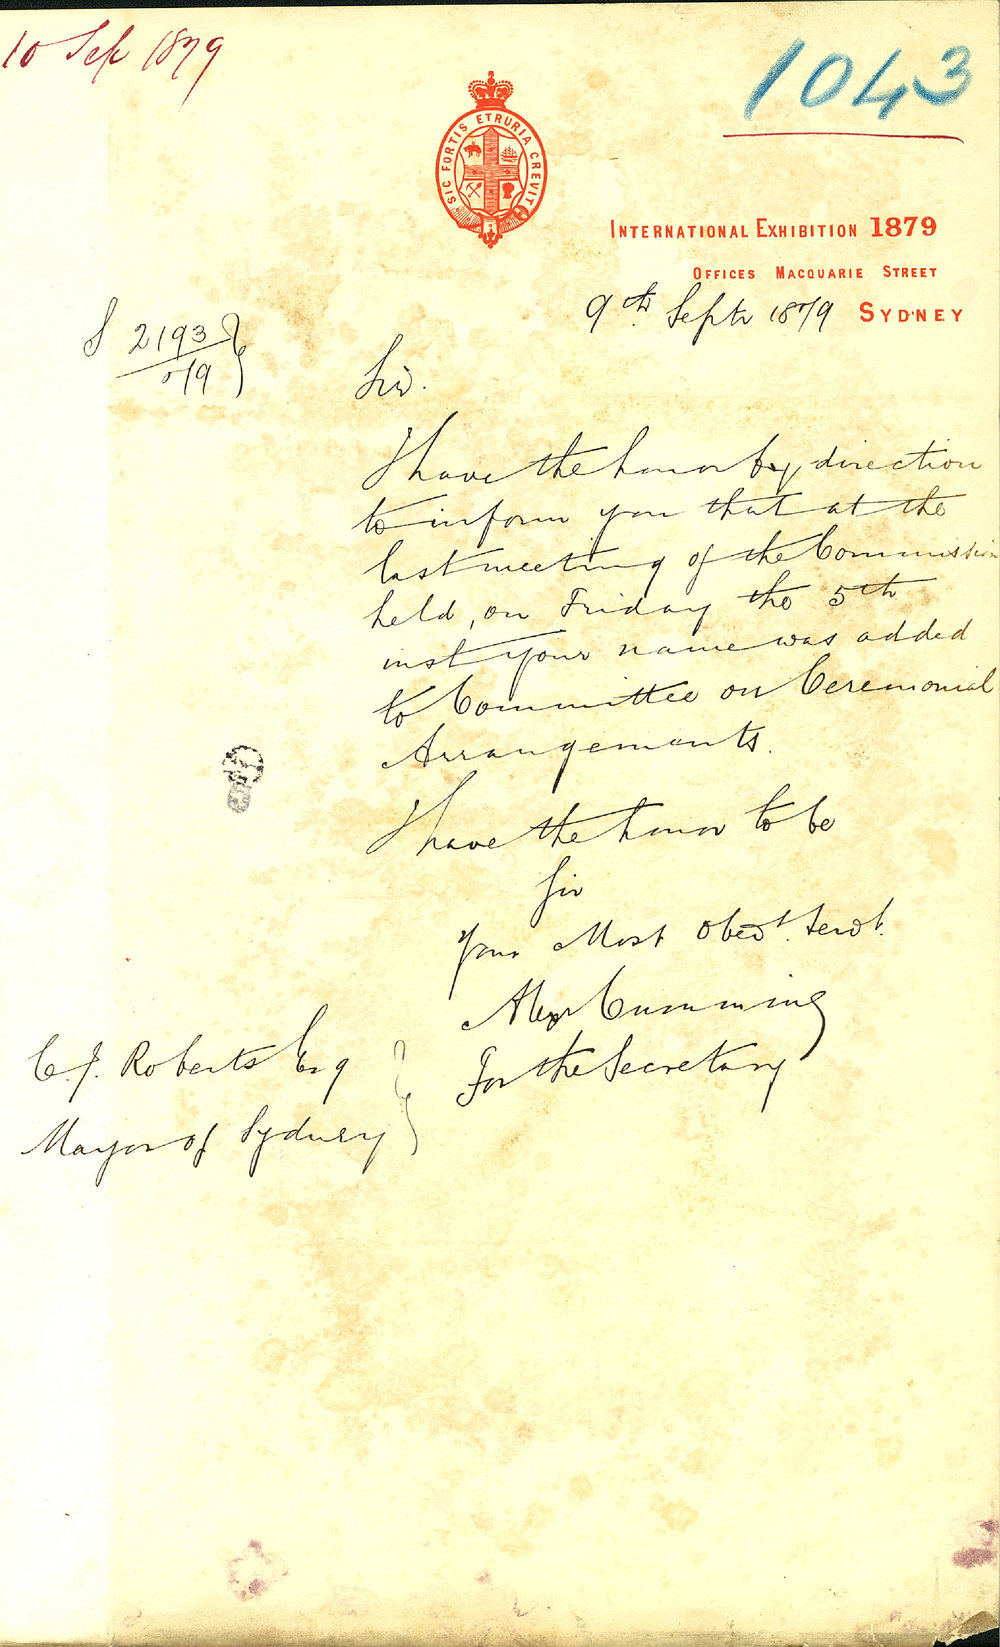 10 Sep 1879
1043
SIC FORTIS ETRURIA CREVIT
INTERNATIONAL EXHIBITION 1879
OFFICES MACQUARIE STREET
9th Septr 1879 SYDNEY
S 2193
79
Sir.
I have the honor by direction
to inform you that at the
last meeting of the Commission
held, on Friday the 5th
inst your name was added
to Committee on Ceremonial
Arrangements.
I have the honor to be
Sir
Your Most Obedt. Servt.
Alexr Cumming
For the Secretary
C. J. Roberts Esq
Mayor of Sydney